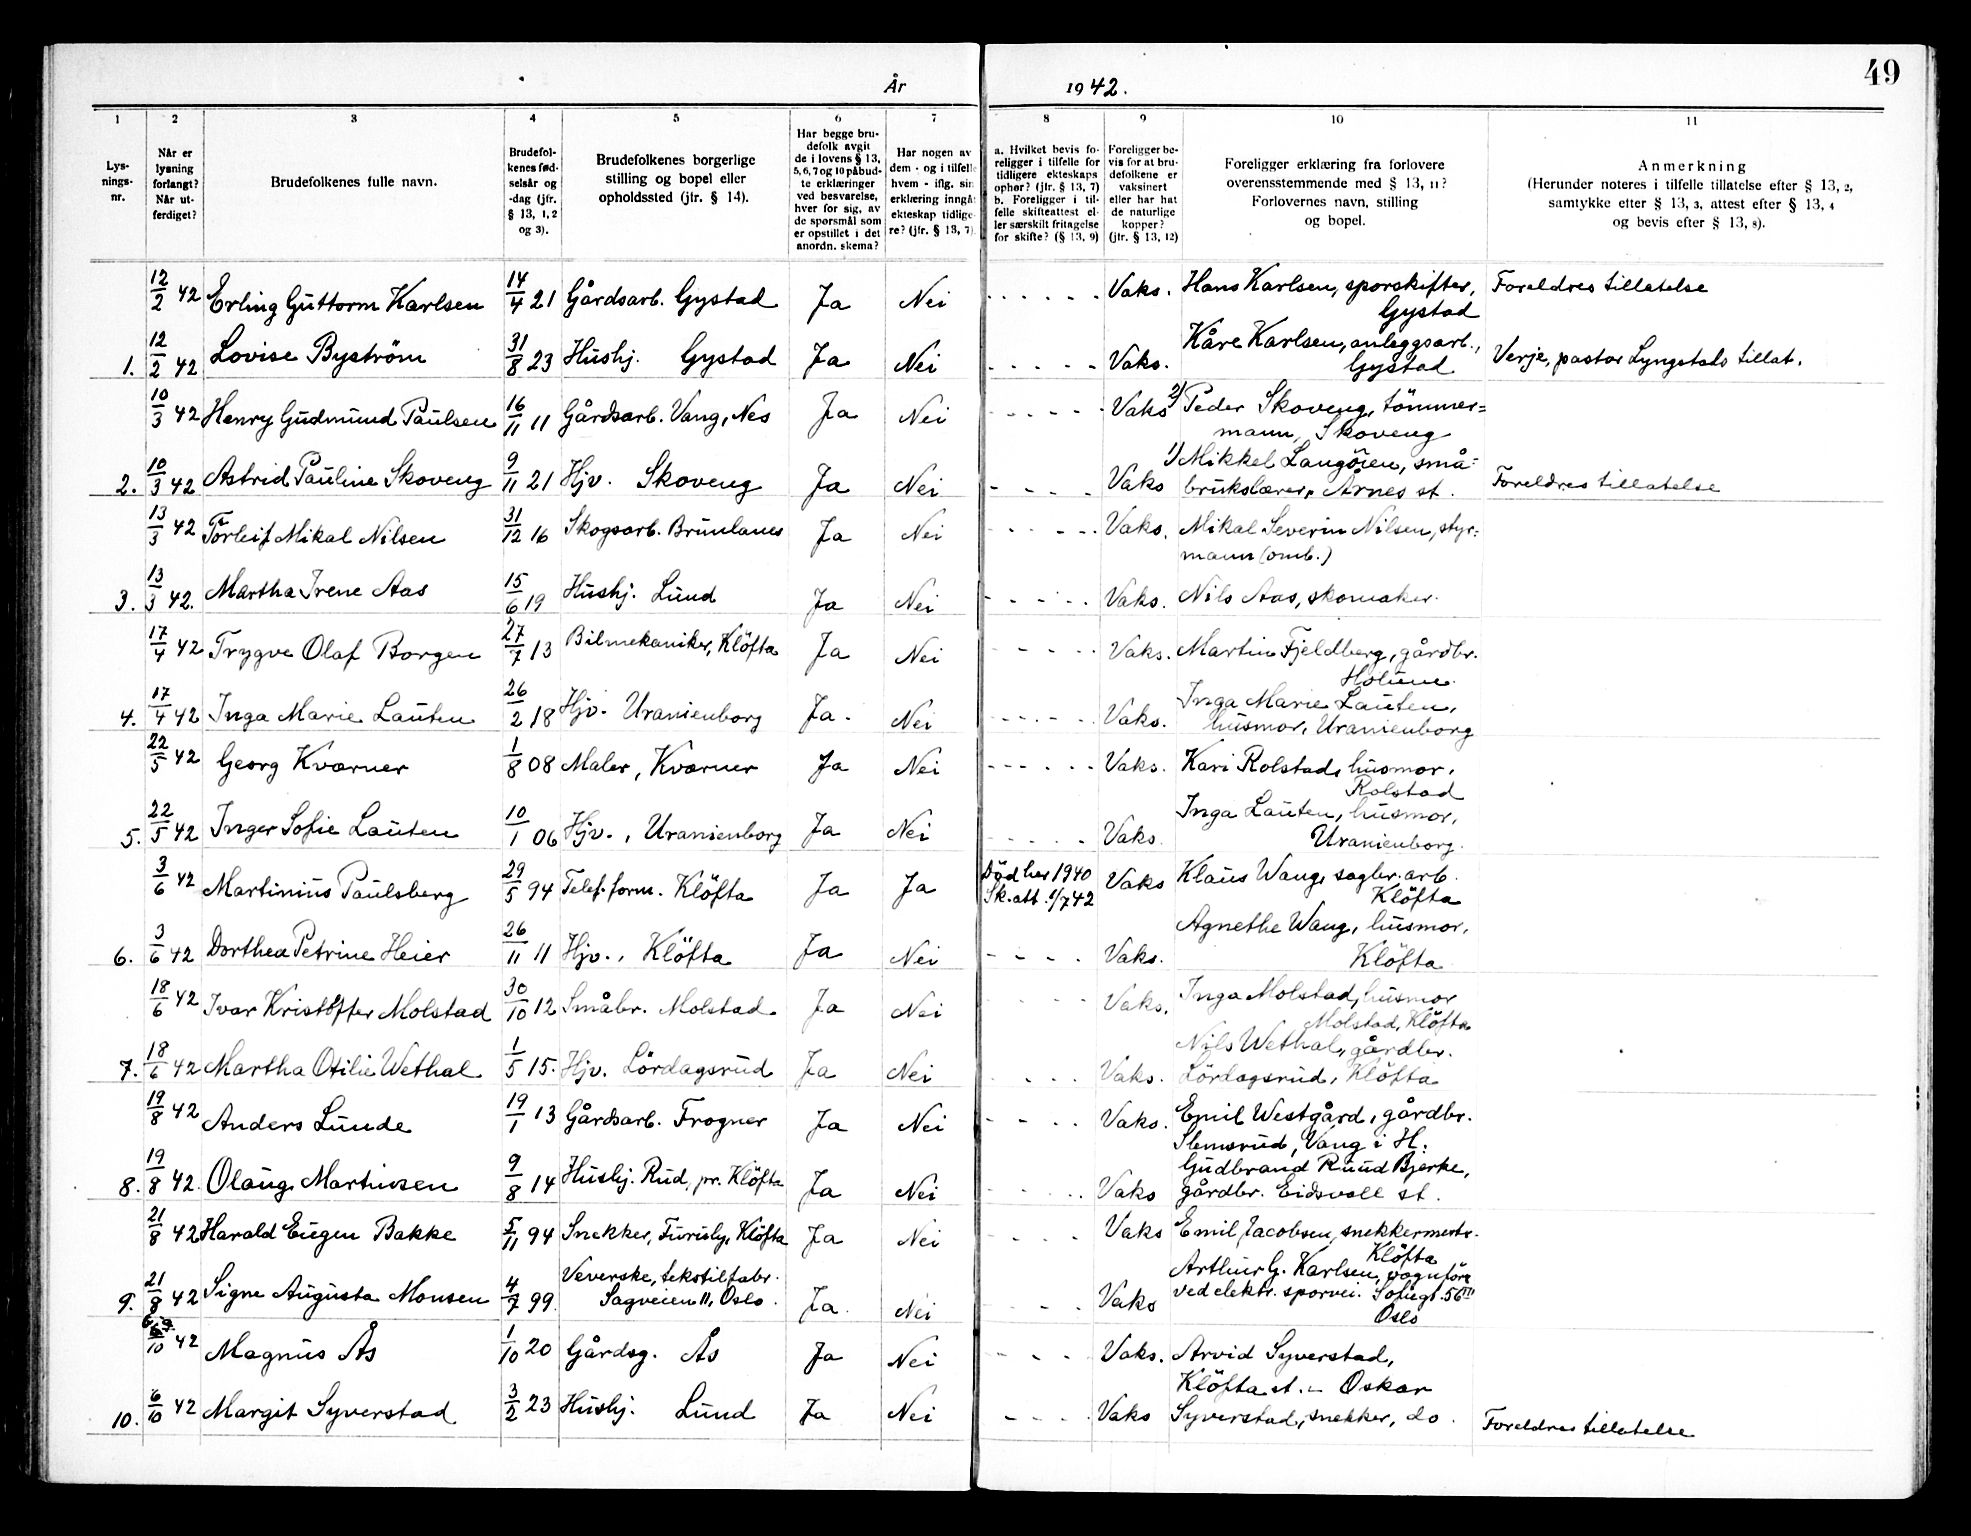 49
År 1942.
1 2 3 4 5 6 7 8 9 10 11
Lys-
nings-
nr.
Når er
lysning
forlangt?
Når ut-
ferdiget?
Brudefolkenes fulle navn.
Brudefol-
kenes fød-
selsår og
-dag (jfr.
§ 13, 1, 2
og 3).
Brudefolkenes borgerlige
stilling og bopel eller
opholdssted (jfr. § 14).
Har begge bru-
defolk avgit
de i lovens § 13,
5, 6, 7 og 10 påbud-
te erklæringer
ved besvarelse,
hver for sig, av
de spørsmål som
er opstillet i det
anordn. skema?
Har nogen av
dem - og i tilfelle
hvem - iflg. sin
erklæring inngå
ekteskap tidlige-
re? (jfr. § 13, 7)
a. Hvilket bevis fo-
religger i tilfelle for
tidligere ekteskaps
ophør? (jfr. § 13, 7)
b. Foreligger i til-
felle skifteattest el-
ler særskilt fritagelse
for skifte? (§ 13, 9)
Foreligger be-
vis for at bru-
defolkene er
vaksinert
eller har hat
de naturlige
kopper?
(jfr. § 13, 12)
Foreligger erklæring fra forlovere
overensstemmende med § 13, 11?
Forlovernes navn, stilling
og bopel.
Anmerkning
(Herunder noteres i tilfelle tillatelse efter § 13, 2,
samtykke etter § 13, 3, attest efter § 13, 4
og bevis efter § 13, 8).
12/2 42 Erling Guttorm Karlsen 14/4 21 Gårdsarb. Gystad Ja Nei - - - - - Vaks. Hans Karlsen, sporskifter, Foreldres tillatelse
Gystad
1. 12/2 42 Lovise Byström 31/8 23 Hushj. Gystad Ja Nei - - - - - Vaks. Kåre Karlsen, anleggsarb., Verje, pastor Lyngstads tillat.
Gystad
10/3 42 Henry Gudmund Paulsen 16/11 11 Gårdsarb. Vang, Nes Ja Nei - - - - - Vaks 2) Peder Skoveng, tömmer=
mann, Skoveng
2. 10/3 42 Astrid Pauline Skoveng 9/11 21 Hjv. Skoveng Ja Nei - - - - Vaks 1) Mikkel Langöien, små=
brukslærer, Årnes st. Foreldres tillatelse
13/3 42 Torleif Mikal Nilsen 31/12 16 Skogsarb. Brunlanes Ja Nei - - - - - Vaks. Mikal Severin Nilsen, styr=
mann (omb.)
3. 13/3 42. Martha Irene Aas 15/6 19 Hushj. Lund Ja Nei - - - - - Vaks. Nils Aas, skomaker.
17/4 42 Trygve Olaf Borgen 27/7 13 Bilmekaniker, Klöfta Ja Nei - - - - - Vaks. Martin Fjeldberg, gårdbr.
Holum
4. 17/4 42 Inga Marie Lauten 26/2 18 Hjv. Uranienborg Ja. Nei - - - - - Vaks. Inga Marie Lauten,
husmor, Uranienborg
22/5 42 Georg Kværner 1/8 08 Maler, Kværner Ja Nei - - - - - Vaks. Kari Rolstad, husmor,
Rolstad
5. 22/5 42 Inger Sofie Lauten 10/1 06 Hjv., Uranienborg Ja Nei - - - - Vaks. Inga Lauten, husmor,
Uranienborg.
3/6 42 Martinius Paulsberg 29/5 94 Telef.form. Klöfta Ja Ja Död her 1940 Vaks Klaus Wang, sagbr.arb.
Sk.att. 1/7 42 Klöfta
6. 3/6 42 Dorthea Petrine Heier 26/11 11 Hjv., Klöfta Ja Nei - - - - Vaks. Agnethe Wang, husmor,
Klöfta
18/6 42 Ivar Kristoffer Molstad 30/10 12 Småbr. Molstad Ja Nei - - - - Vaks. Inga Molstad, husmor
Molstad, Klöfta
7. 18/6 42 Martha Otilie Wethal 1/5 15. Hjv. Lördagsrud Ja Nei - - - - Vaks. Nils Wethal, gårdbr.
Lördagsrud, Klöfta
19/8 42 Anders Lunde 19/1 13 Gårdsarb. Frogner Ja Nei - - - - Vaks. Emil Westgård, gårdbr.
Slemsrud, Vang i H.
8. 19/8 42 Olaug Martinsen 9/8 14 Hushj. Rud, pr. Klöfta Ja Nei - - - - Vaks Gudbrand Ruud Bjerke,
gårdbr. Eidsvoll st.
21/8 42 Harald Eugen Bakke 5/11 94 Snekker, Furuly, Klöfta Ja Nei - - - - Vaks Emil Jacobsen, snekkermestr.
Klöfta
9. 21/8 42 Signe Augusta Monsen 4/7 99. Veverske, tekstilfabr.
Sagveien 11, Oslo. Ja. Nei - - - Vaks Arthur G. Karlsen, vognförer
ved elektr. sporvei. Sofiegt. 56 III
Oslo
6/10 42 Magnus Ås 1/10 20 Gårdsg. Ås Ja Nei - - - Vaks. Arvid Syverstad,
Klöfta st. - Oskar
10. 6/10 42 Margit Syverstad 3/2 23 Hushj. Lund Ja Nei - - - - Vaks Syverstad, snekker, do. Foreldres tillatelse